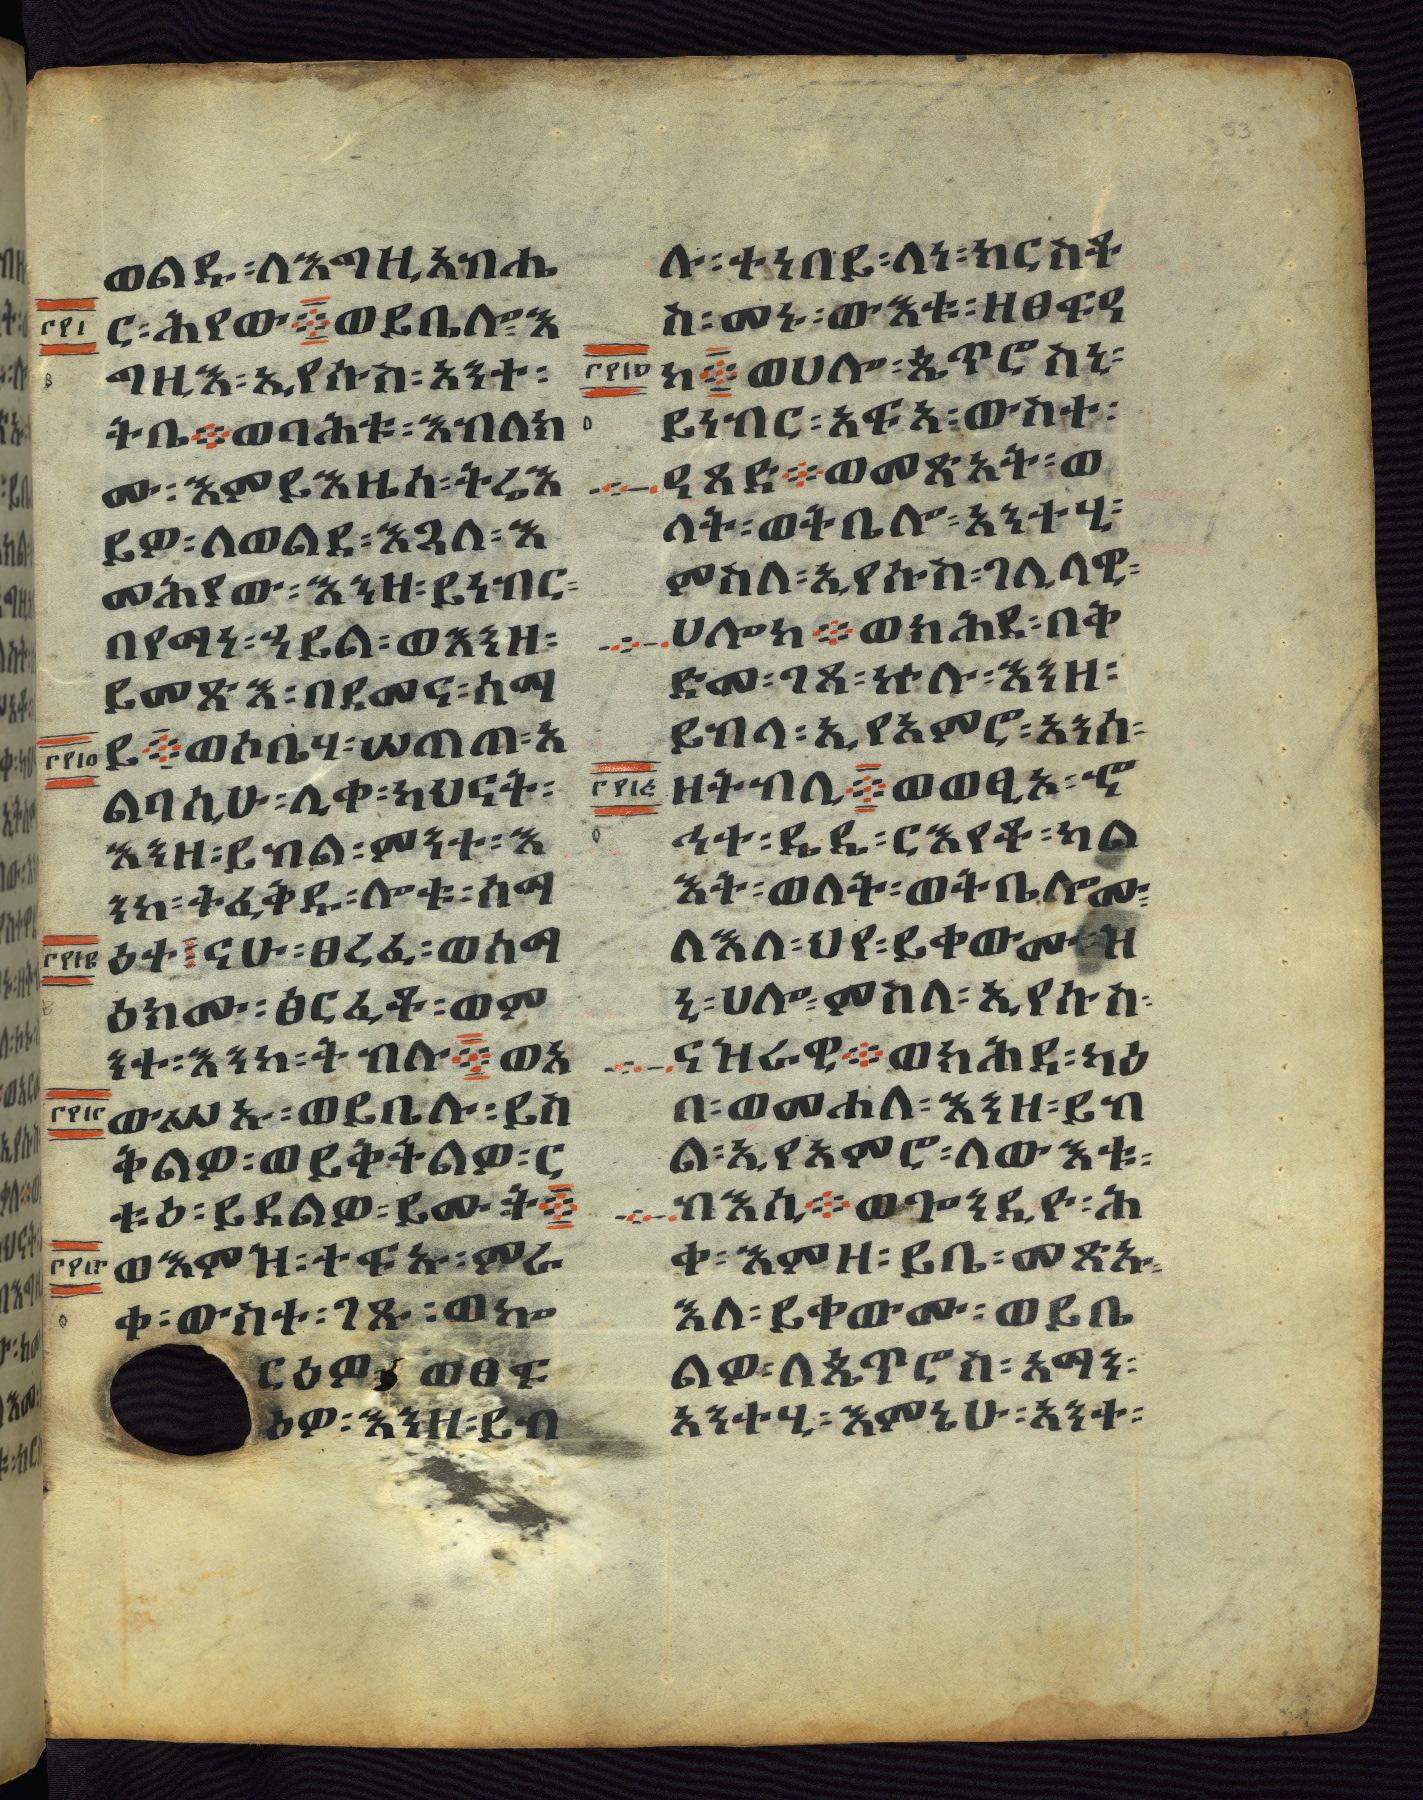 53
ወልዱ፡ለእግዚአብሔ
ር፡ሕየው፨ወይቤሎ፡እ
ግዚእ፡ኢየሱስ፡አንተ፡
ትቤ፨ወባሕቱ፡እብለክ
ሙ፡እምይእዜሰ፡ትሬእ
ይዎ፡ለወልደ፡እጓለ፡እ
መሕየው፡እንዘ፡ይነብር፡
በየማነ፡ኀይል፡ወእንዘ፡
ይመጽእ፡በደመና፡ሰማ
ይ፨ወሶቤሃ፡ሠጠጠ፡አ
ልባሲሁ፡ሊቀ፡ካህናት፡
እንዘ፡ይብል፡ምንተ፡እ
ንከ፡ትፈቅዱ፡ሎቱ፡ሰማ
ዕተ፡ናሁ፡ፀረፈ፡ወሰማ
ዕክሙ፡ፅርፈቶ፡ወም
ንተ፡እንከ፡ትብሉ፨ወአ
ውሥኡ፡ወይቤሉ፡ይስ
ቅልዎ፡ወይቅትልዎ፡ር
ቱዕ፡ይደልዎ፡ይሙት፨
ወእምዝ፡ተፍኡ፡ምራ
ቀ፡ውስተ፡ገጹ፡ወኰ
ርዕዎ፡ወፀፍ
ዕዎ፡እንዘ፡ይብ
ሉ፡ተነበይ፡ለነ፡ክርስቶ
ስ፡መኑ፡ውእቱ፡ዘፀፍዓ
ከ፨ወሀሎ፡ጴጥሮስኒ፡
ይነብር፡አፍአ፡ውስተ፡
ዓጸድ፨ወመጽአት፡ወ
ለት፡ወትቤሎ፡አንተሂ፡
ምስለ፡ኢየሱስ፡ገሊላዊ፡
ሀሎከ፨ወክሕደ፡በቅ
ድመ፡ገጸ፡ኵሉ፡እንዘ፡
ይብል፡ኢየአምሮ፡አንሰ፡
ዘትብሊ፨ወወፂኦ፡ኆ
ኅተ፡ዴዴ፡ርእየቶ፡ካል
እት፡ወለት፡ወትቤሎሙ፡
ለእለ፡ህየ፡ይቀውሙ፡ዝ
ኒ፡ሀሎ፡ምስለ፡ኢየሱስ፡
ናዝራዊ፨ወክሕደ፡ካዕ
በ፡ወመሐለ፡እንዘ፡ይብ
ል፡ኢየአምሮ፡ለውእቱ፡
ብእሲ፨ወጐንዲዮ፡ሕ
ቀ፡እምዘ፡ይቤ፡መጽኡ፡
እለ፡ይቀውሙ፡ወይቤ
ልዎ፡ለጴጥሮስ፡አማን፡
አንተሂ፡እምኔሁ፡አንተ፡